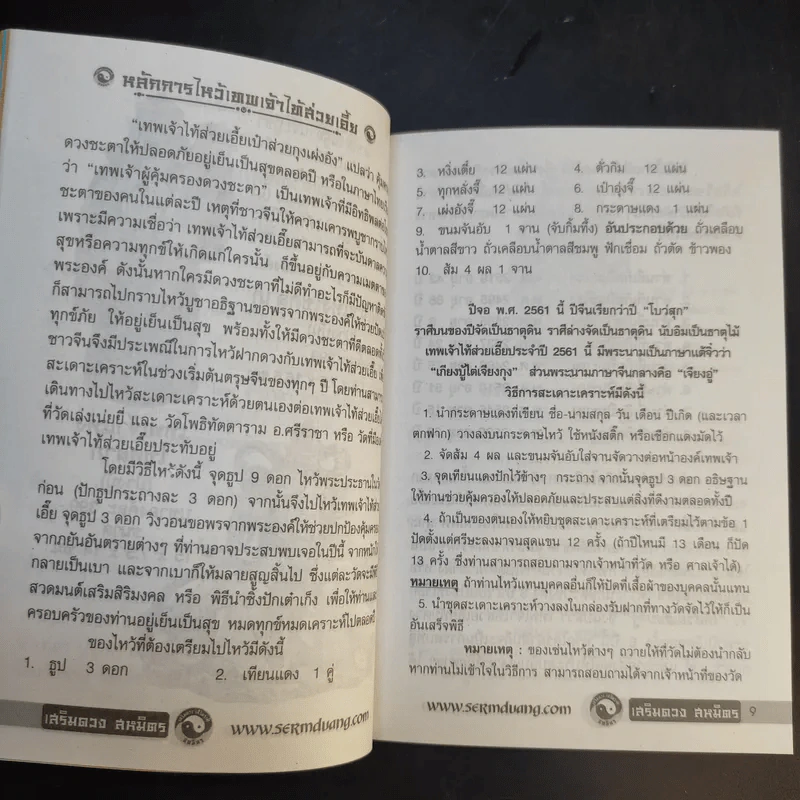 หลักการไหว้เทพเจ้าไท้ส่วยเอี้ย
"เทพเจ้าไท้ส่วยเอี้ยเป๋าส่วยกุงเผ่งอัง" แปลว่า
ดวงชะตาให้ปลอดภัยอยู่เย็นเป็นสุขตลอดปี หรือในภาษาไทย
ว่า "เทพเจ้าผู้คุ้มครองดวงชะตา" เป็นเทพเจ้าที่มีอิทธิพล
ชะตาของคนในแต่ละปี เหตุที่ชาวจีนให้ความเคารพบูชา
เพราะมีความเชื่อว่า เทพเจ้าไท้ส่วยเอี้ยสามารถที่จะบันดาล
สุขหรือความทุกข์ให้เกิดแก่ใครนั้น ก็ขึ้นอยู่กับความเมตตา
พระองค์ ดังนั้นหากใครมีดวงชะตาที่ไม่ดีทำอะไรก็มีปัญหา
ก็สามารถไปกราบไหว้บูชาอธิฐานขอพรจากพระองค์ให้ช่วย
ทุกข์ภัย ให้อยู่เย็นเป็นสุข พร้อมทั้งให้มีดวงชะตาที่ดีตลอด
ชาวจีนจึงมีประเพณีในการไหว้ฝากดวงกับเทพเจ้าไท้ส่วยเอี้ย
สะเดาะเคราะห์ในช่วงเริ่มต้นตรุษจีนของทุกๆ ปี โดยท่านสามารถ
เดินทางไปไหว้สะเดาะเคราะห์ด้วยตนเองต่อเทพเจ้าไท้ส่วยเอี้ย
ที่วัดเล่งเน่ยยี่ และ วัดโพธิทัตตาราม อ.ศรีราชา หรือ วัดที่มี
เทพเจ้าไท้ส่วยเอี้ยประทับอยู่
โดยมีวิธีไหว้ดังนี้ จุดธูป 9 ดอก ไหว้พระประธาน
ก่อน (ปักธูปกระถางละ 3 ดอก) จากนั้นจึงไปไหว้เทพเจ้าไท้ส่วย
เอี้ย จุดธูป 3 ดอก วิงวอนขอพรจากพระองค์ให้ช่วยปกป้องคุ้มครอง
จากภยันอันตรายต่างๆ ที่ท่านอาจประสบพบเจอในปีนี้ จากหนัก
กลายเป็นเบา และจากเบาก็ให้มลายสูญสิ้นไป ซึ่งแต่ละวัดจะมีพิธี
สวดมนต์เสริมสิริมงคล หรือ พิธีนำชั้งปักเต๋าเก็ง เพื่อให้ท่านและ
ครอบครัวของท่านอยู่เย็นเป็นสุข หมดทุกข์หมดเคราะห์ไปตลอดปี
ของไหว้ที่ต้องเตรียมไปไหว้มีดังนี้
1. ธูป 3 ดอก 2. เทียนแดง 1 คู่
เสริมดวง สหมิตร www.sermduang.com
3. หงิ่งเตี๋ย 12 แผ่น 4. ตั่วกิม 12 แผ่น
5. ทุกหลั่งจี๊ 12 แผ่น 6. เป๋าอุ่งจี๊ 12 แผ่น
7. เผ่งอังจี๊ 12 แผ่น 8. กระดาษแดง 1 แผ่น
9. ขนมจันอับ 1 จาน (จับกิ้มทึ้ง) อันประกอบด้วย ถั่วเคลือบ
น้ำตาลสีขาว ถั่วเคลือบน้ำตาลสีชมพู ฟักเชื่อม ถั่วตัด ข้าวพอง
10. ส้ม 4 ผล 1 จาน
ปีจอ พ.ศ. 2561 นี้ ปีจีนเรียกว่าปี "โบว่สุก"
ราศีบนของปีจัดเป็นธาตุดิน ราศีล่างจัดเป็นธาตุดิน นับอิมเป็นธาตุไม้
เทพเจ้าไท้ส่วยเอี้ยประจำปี 2561 นี้ มีพระนามเป็นภาษาแต้จิ๋วว่า
"เกียงบู๊ไต่เจียงกุง" ส่วนพระนามภาษาจีนกลางคือ "เจียงอู่"
วิธีการสะเดาะเคราะห์มีดังนี้
1. นำกระดาษแดงที่เขียน ชื่อ-นามสกุล วัน เดือน ปีเกิด (และเวลา
ตกฟาก) วางลงบนกระดาษไหว้ ใช้หนังสติ๊ก หรือเชือกแดงมัดไว้
2. จัดส้ม 4 ผล และขนมจันอับใส่จานจัดวางต่อหน้าองค์เทพเจ้า
3. จุดเทียนแดงปักไว้ข้างๆ กระถาง จากนั้นจุดธูป 3 ดอก อธิษฐาน
ให้ท่านช่วยคุ้มครองให้ปลอดภัยและประสบแต่สิ่งที่ดีงามตลอดทั้งปี
4. ถ้าเป็นของตนเองให้หยิบชุดสะเดาะเคราะห์ที่เตรียมไว้ตามข้อ 1
ปัดตั้งแต่ศรีษะลงมาจนสุดแขน 12 ครั้ง (ถ้าปีไหนมี 13 เดือน ก็ปัด
13 ครั้ง ซึ่งท่านสามารถสอบถามจากเจ้าหน้าที่วัด หรือ ศาลเจ้าได้)
หมายเหตุ ถ้าท่านไหว้แทนบุคคลอื่นก็ให้ปัดที่เสื้อผ้าของบุคคลนั้นแทน
5. นำชุดสะเดาะเคราะห์วางลงในกล่องรับฝากที่ทางวัดจัดไว้ให้ก็เป็น
อันเสร็จพิธี
หมายเหตุ : ของเซ่นไหว้ต่างๆ ถวายให้ที่วัดไม่ต้องนำกลับ
หากท่านไม่เข้าใจในวิธีการ สามารถสอบถามได้จากเจ้าหน้าที่ของวัด
www.sermduang.com เสริมดวง สหมิตร 9